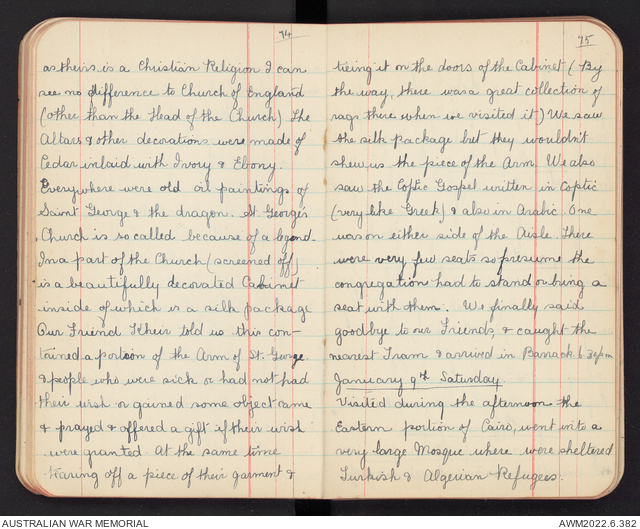 74
as theirs is a Christian Religion I can
see no difference to Church of England
(other than the Head of the Church) The
Altars & other decorations were made of
Cedar inlaid with Ivory & Ebony.
Everywhere were old oil paintings of
Saint George & the dragon. St. George's
Church is so called because of a legend.
In a part of the Church (screened off)
is a beautifully decorated Cabinet
inside of which is a silk package
Our Friend Kheir told us this con-
tained a portion of the Arm of St. George.
& people who were sick or had not had
their wish or gained some object came
& prayed & offered a gift if their wish
were granted. At the same time
tearing off a piece of their garment &
75
tieing it on the doors of the Cabinet (By
the way, there was a great collection of
rags there when we visited it) We saw
the silk package but they wouldn't
shew us the piece of the Arm. We also
saw the Coptic Gospel written in Coptic
(very like Greek) & also in Arabic. One
was on either side of the Aisle. There
were very few seats so presume the
congregation had to stand or bring a
seat with them. We finally said
goodbye to our Friends, & caught the
nearest Tram & arrived in Barrack 6.30pm
January 9th Saturday.
Visited during the afternoon the
Eastern portion of Cairo, went into a
very large Mosque where were sheltered
Turkish & Algerian Refugees.
AUSTRALIAN WAR MEMORIAL
AWM2022.6.382